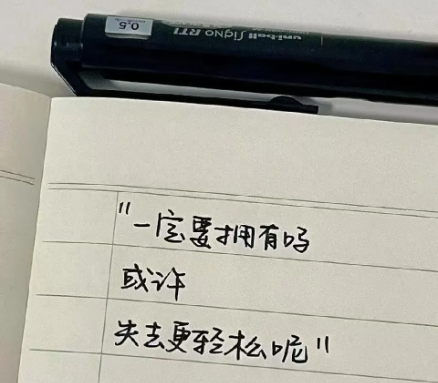 0.5
uni-ball Signo RT1
"一定要拥有吗
或许
失去更轻松呢"